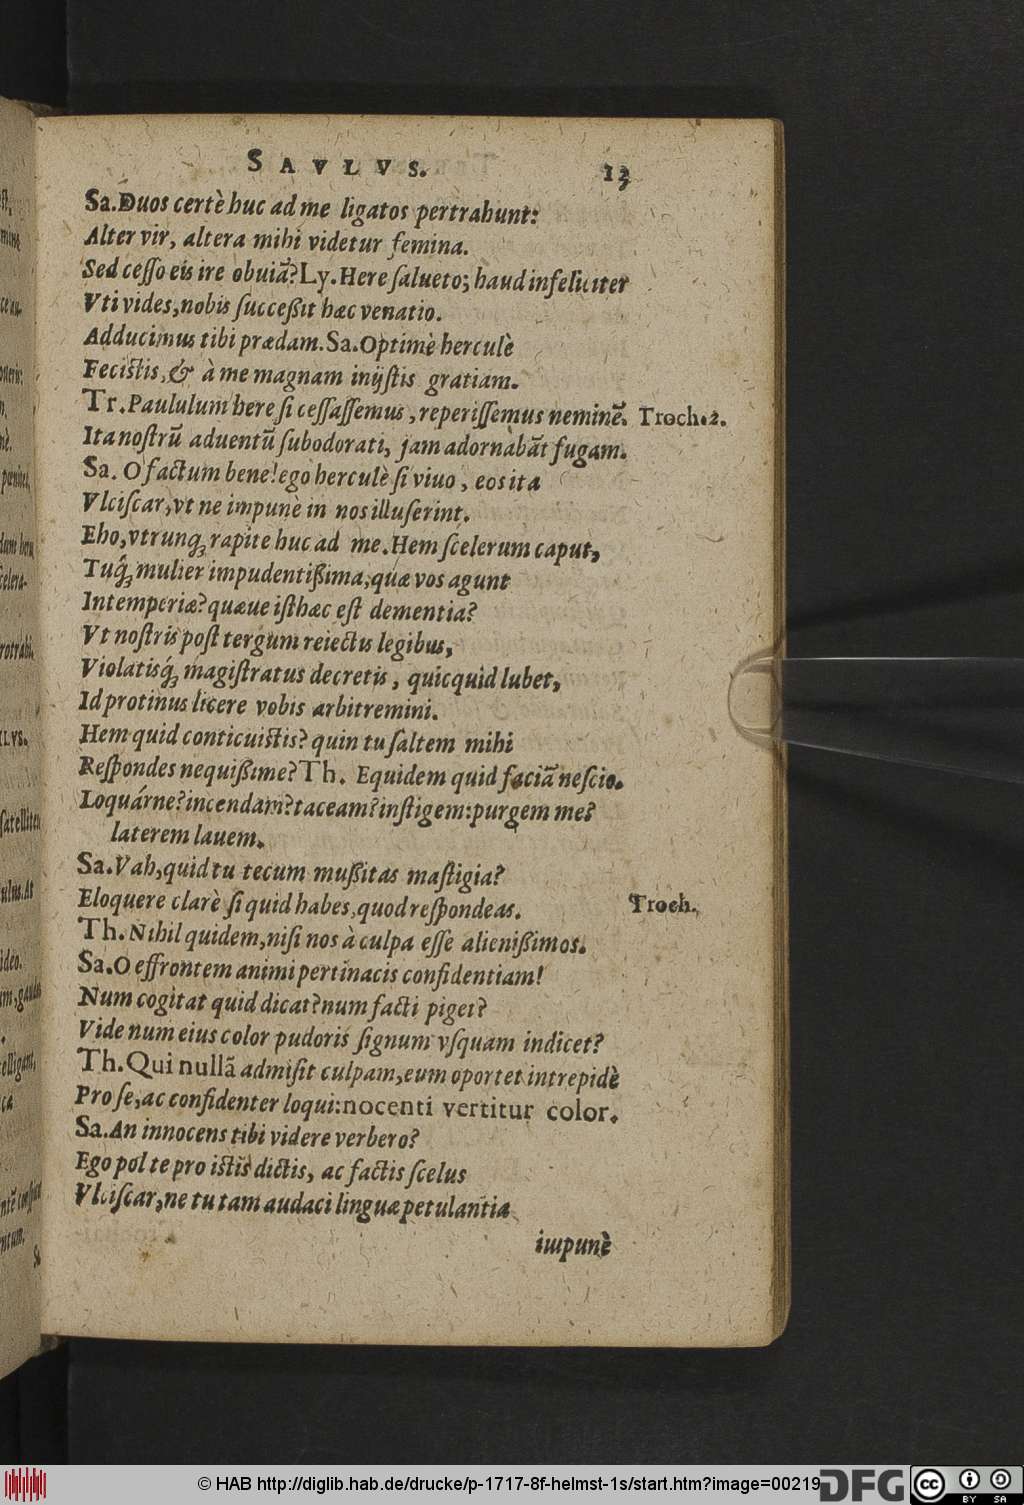 SAVLVS. 13
Sa. Duos certè huc ad me ligatos pertrahunt:
Alter vir, altera mihi videtur femina.
Sed cesso eis ire obuiã? Ly. Here salueto; haud infeliciter
Vti vides, nobis succeßit hæc venatio.
Adducimus tibi prædam. Sa. Optimè herculè
Fecistis, & à me magnam inijstis gratiam.
Tr. Paululum here si cessassemus, reperissemus neminẽ. Troch. 2.
Ita nostrũ aduentũ subodorati, jam adornabãt fugam.
Sa. O factum bene! ego herculè si viuo, eos ita
Vlciscar, vt ne impunè in nos illuserint.
Eho, vtrunq; rapite huc ad me. Hem scelerum caput,
Tuq́; mulier impudentißima, quæ vos agunt
Intemperiæ? quæue isthæc est dementia?
Vt nostris post tergum reiectus legibus,
Violatisq́; magistratus decretis, quicquid lubet,
Id protinus licere vobis arbitremini.
Hem quid conticuistis? quin tu saltem mihi
Respondes nequißime? Th. Equidem quid faciã nescio.
Loquárne? incendam? taceam? instigem: purgem me?
laterem lauem.
Sa. Vah, quid tu tecum mußitas mastigia?
Eloquere clarè si quid habes, quod respondeas. Troch.
Th. Nihil quidem, nisi nos à culpa esse alienißimos.
Sa. O effrontem animi pertinacis confidentiam!
Num cogitat quid dicat? num facti piget?
Vide num eius color pudoris signum vsquam indicet?
Th. Qui nullã admisit culpam, eum oportet intrepidè
Pro se, ac confidenter loqui: nocenti vertitur color.
Sa. An innocens tibi videre verbero?
Ego pol te pro istis dictis, ac factis scelus
Vlciscar, ne tu tam audaci linguæ petulantia
impunè
© HAB http://diglib.hab.de/drucke/p-1717-8f-helmst-1s/start.htm?image=00219
DFG
cc BY SA